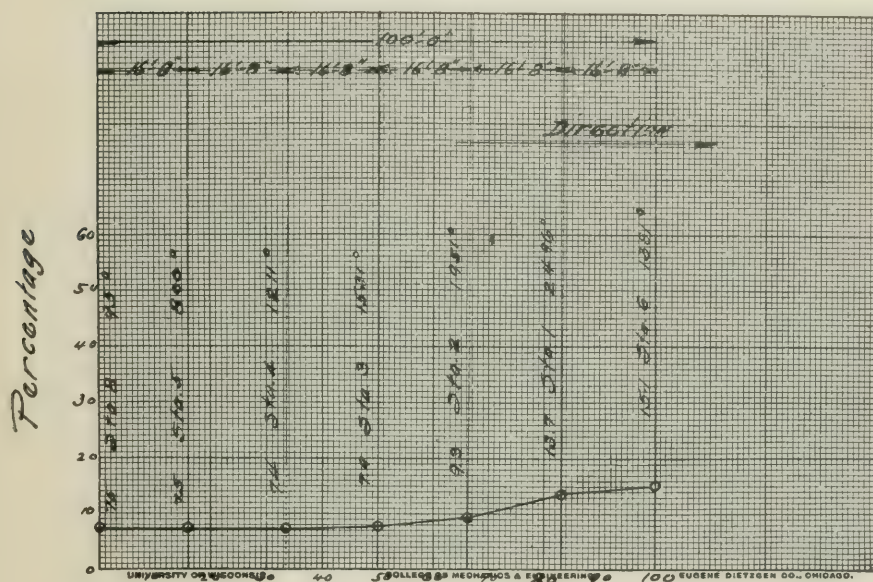 100'-0"
16'-8" 16'-8" 16'-8" 16'-8" 16'-8" 16'-8"
Direction
Percentage
60
50
40
30
20
10
0
7.5 Sta. 5 800°
7.4 Sta. 4 1211°
Sta. 3
9.3 Sta. 2 1931°
13.7 Sta. 1
15.1 Sta. 6 1381°
20 30 40 50 90 100
UNIVERSITY OF WISCONSIN COLLEGE OF MECHANICS & ENGINEERING EUGENE DIETZGEN CO., CHICAGO.